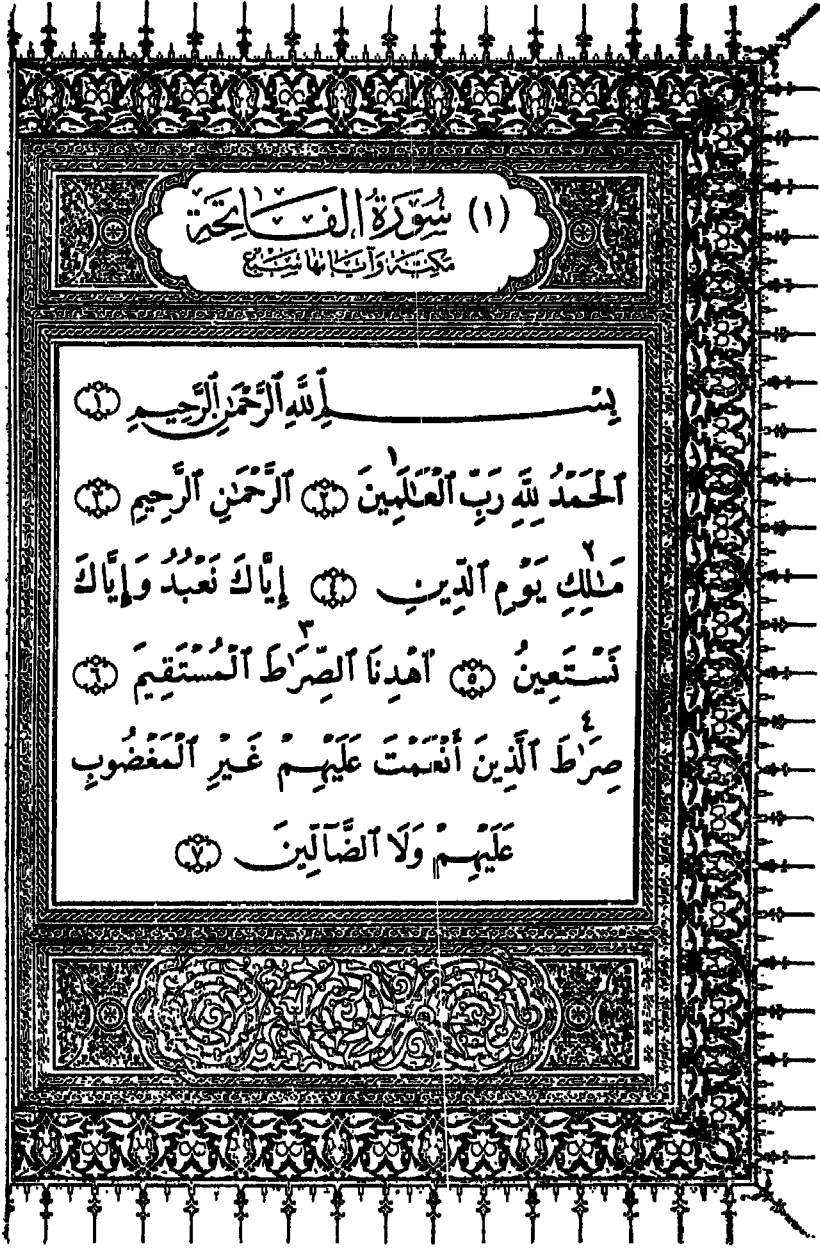 (١) سُورَةُ الفَاتِحَة
مكيّة وآياتها سَبْع
بِسْمِ ٱللَّهِ ٱلرَّحْمَٰنِ ٱلرَّحِيمِ ١
ٱلْحَمْدُ لِلَّهِ رَبِّ ٱلْعَٰلَمِينَ١ ٢ ٱلرَّحْمَٰنِ ٱلرَّحِيمِ ٣
مَٰلِكِ٢ يَوْمِ ٱلدِّينِ ٤ إِيَّاكَ نَعْبُدُ وَإِيَّاكَ
نَسْتَعِينُ ٥ ٱهْدِنَا ٱلصِّرَٰطَ٣ ٱلْمُسْتَقِيمَ ٦
صِرَٰطَ٤ ٱلَّذِينَ أَنْعَمْتَ عَلَيْهِمْ غَيْرِ ٱلْمَغْضُوبِ
عَلَيْهِمْ وَلَا ٱلضَّآلِّينَ ٧